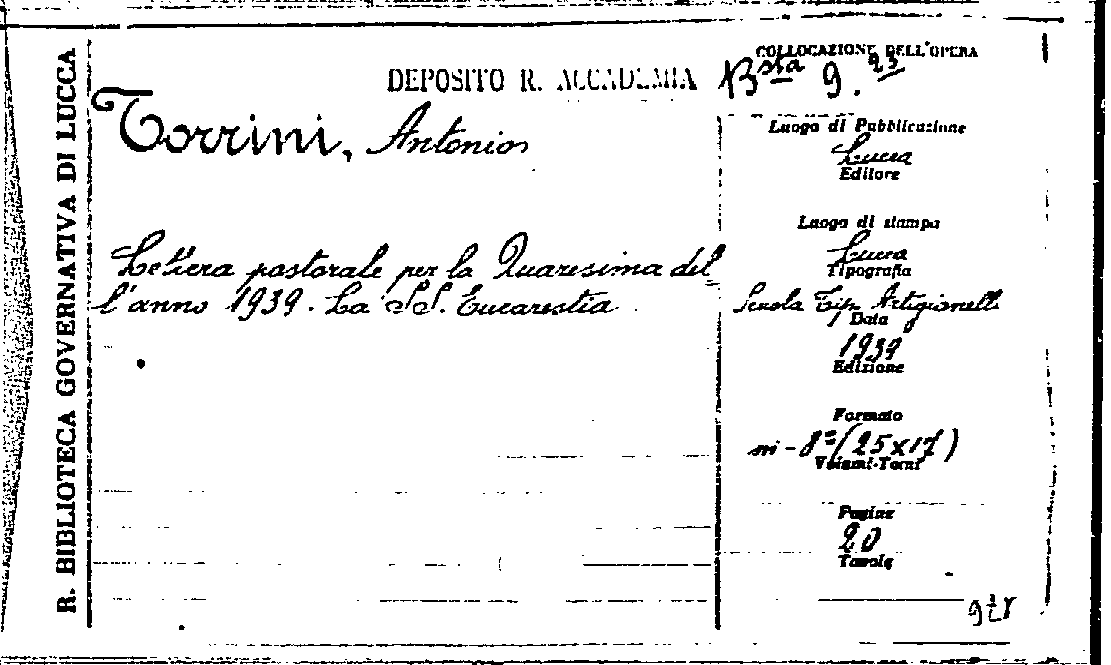 R. BIBLIOTECA GOVERNATIVA DI LUCCA
DEPOSITO R. ACCADEMIA
COLLOCAZIONE DELL'OPERA
Bsta 9. 23
Torrini, Antonio
Lettera pastorale per la Quaresima del
l'anno 1939. La SS. Eucarestia
Luogo di Pubblicazione
Lucca
Editore
Luogo di stampa
Lucca
Tipografia
Scuola Tip. Artigianelli
Data
1939
Edizione
Formato
in-8º (25x17)
Volumi-Tomi
Pagine
20
Tavole